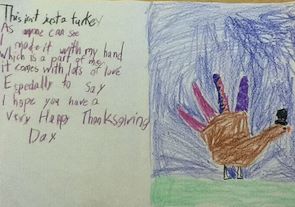 This isn't just a turkey
As anyone can see
I made it with my hand
Which is a part of me
it comes with lots of love
Especially to say
I hope you have a
very Happy Thanksgiving
Day